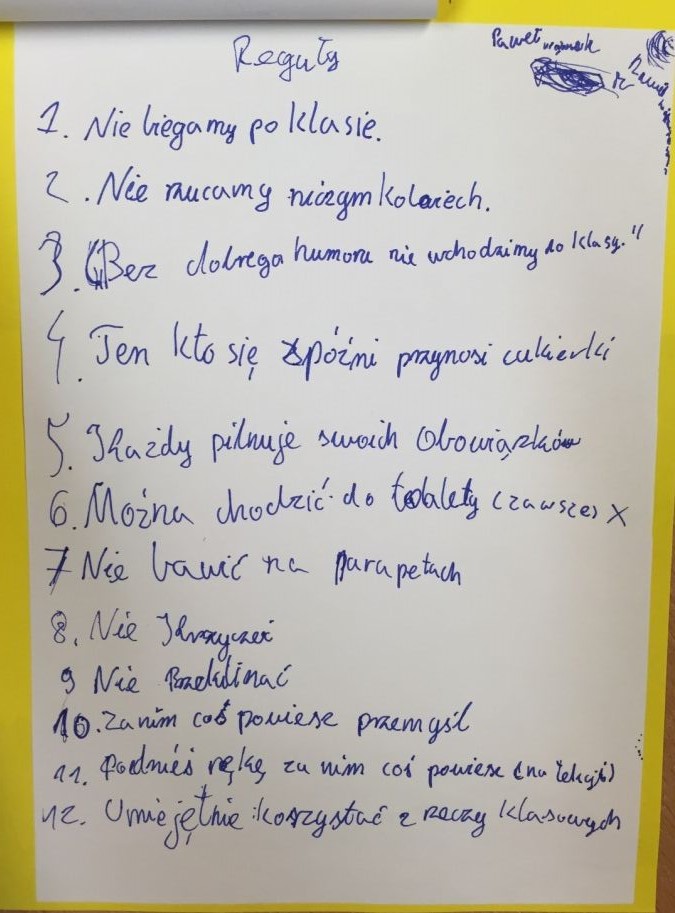 Reguły
Paweł
1. Nie biegamy po klasie.
2. Nie rzucamy niczym kolwiech.
3. "Bez dobrego humoru nie wchodzimy do klasy."
4. Ten kto się spóźni przynosi cukierki
5. Każdy pilnuje swoich obowiązków
6. Można chodzić do toalety (zawsze) X
7 Nie bawić na parapetach
8. Nie krzyczeć
9 Nie Przeklinać
10. Zanim coś powiesz przemyśl
11. Podnieś rękę za nim coś powiesz (na lekcji)
12. Umiejętnie koszystać z rzeczy klasowych